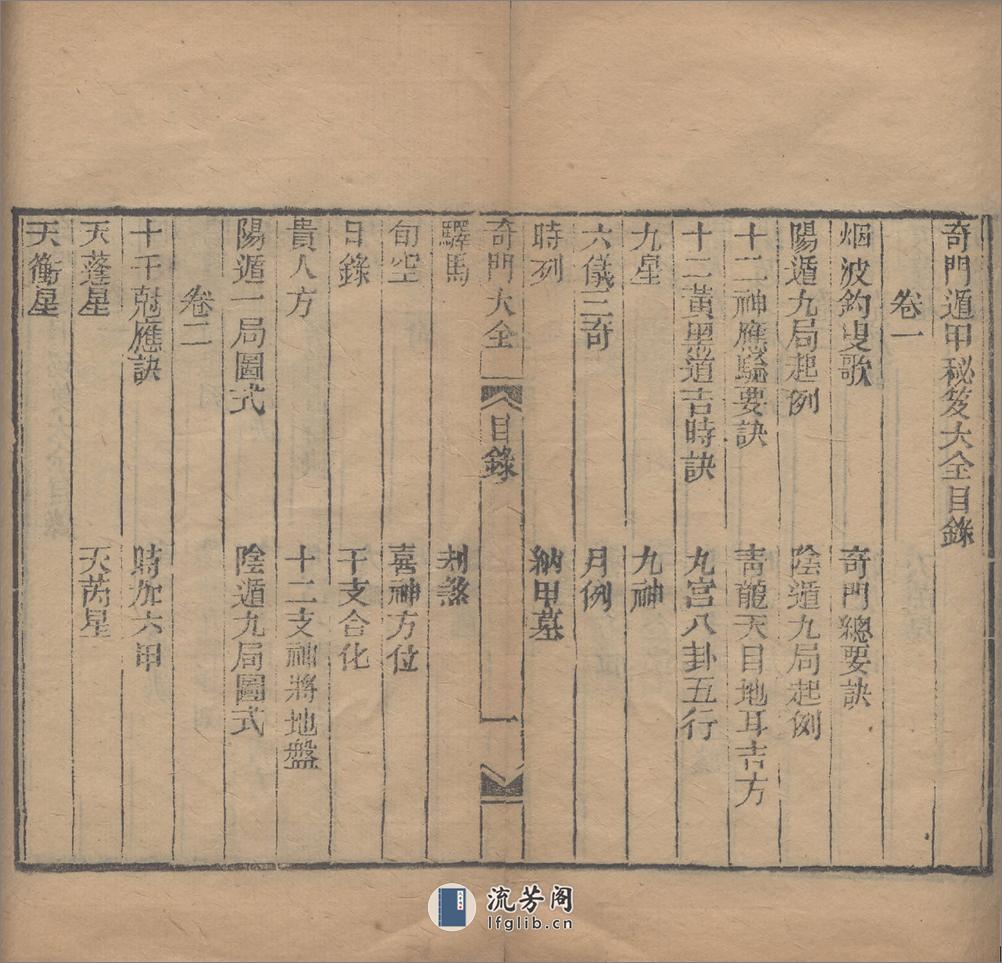 奇門遁甲秘笈大全目錄
卷一
烟波釣叟歌　奇門總要訣
陽遁九局起例　陰遁九局起例
十二神應驗要訣　青龍天目地耳吉方
十二黃黑道吉時訣　九宮八卦五行
九星　九神
六儀三奇　月例
時列　納甲墓
奇門大全　目錄　一
驛馬　刦煞
旬空　喜神方位
日錄　干支合化
貴人方　十二支神將地盤
陽遁一局圖式　陰遁九局圖式
卷二
十干尅應訣　時加六甲
天蓬星　天芮星
天衝星
流芳阁
lfglib.cn